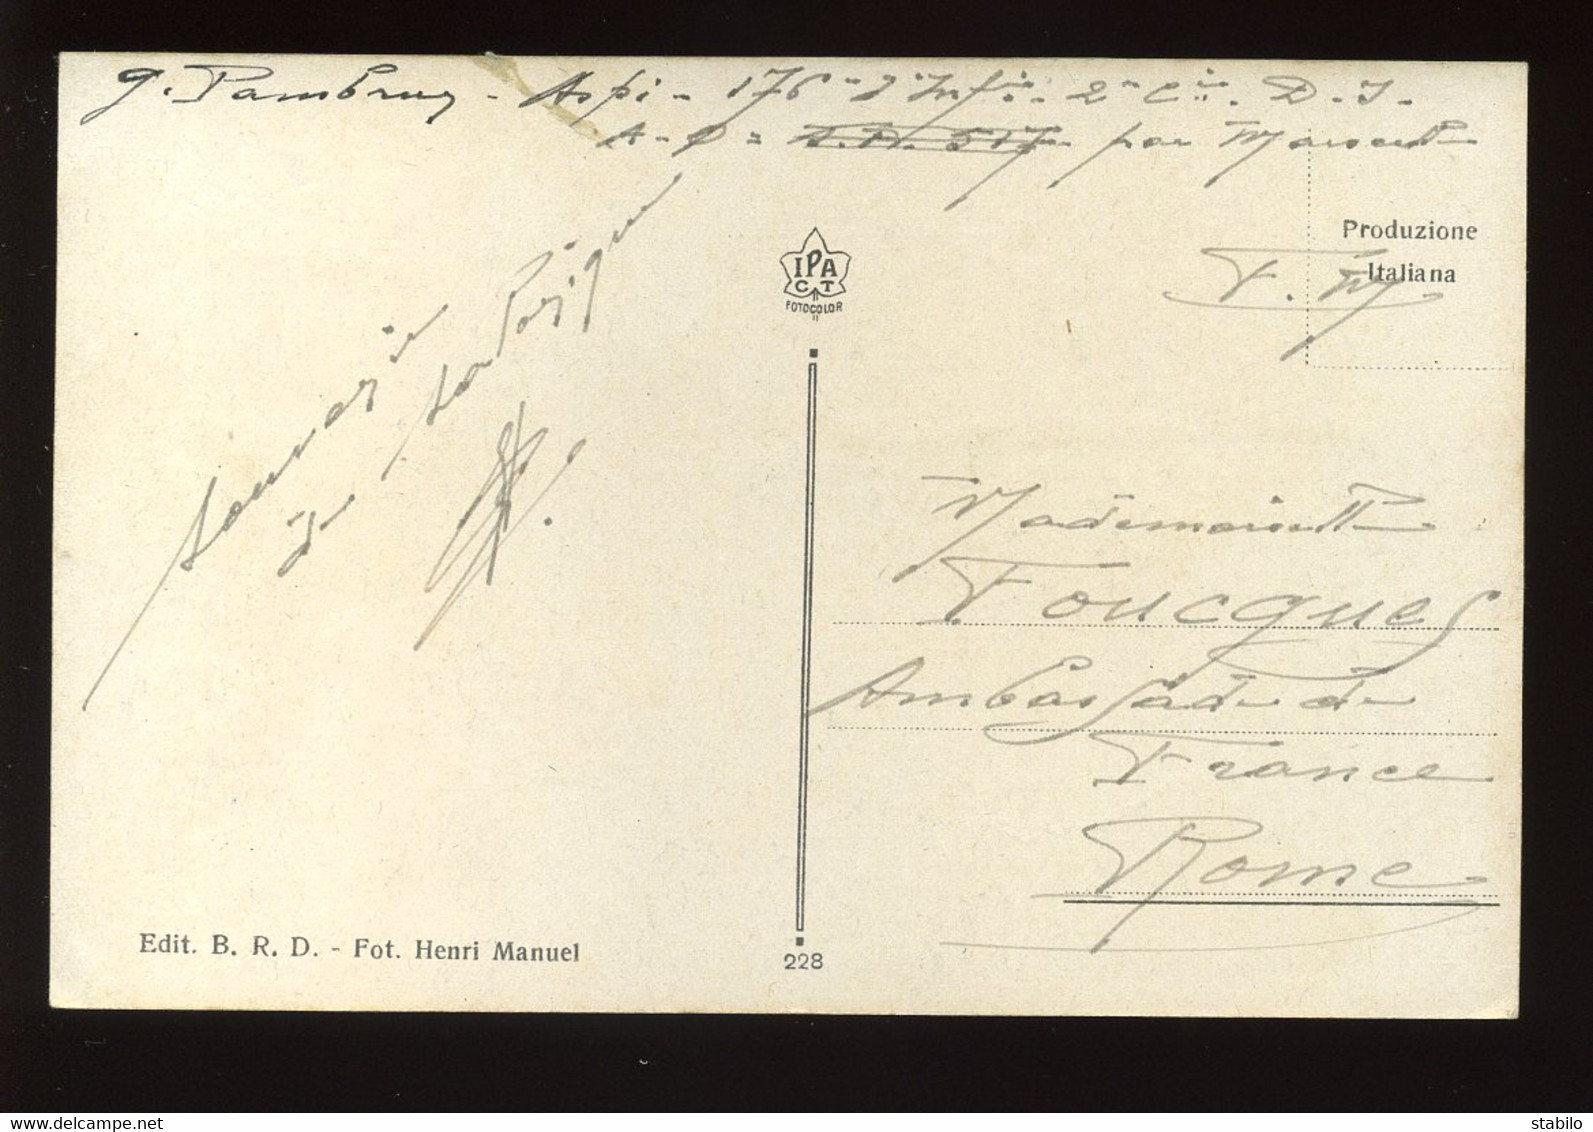 g. Pambrun - Aspi - 176e d'Inf ie - 2e Cie. D. I.
A - O = S.P. 517 par Marseille
Produzione
Italiana
F. M.
IPA
CT
FOTOCOLOR
Souvenir
de
Mademoiselle
Foucques
Ambassade de
France
Rome
Edit. B. R. D. - Fot. Henri Manuel
228
www.delcampe.net
stabilo